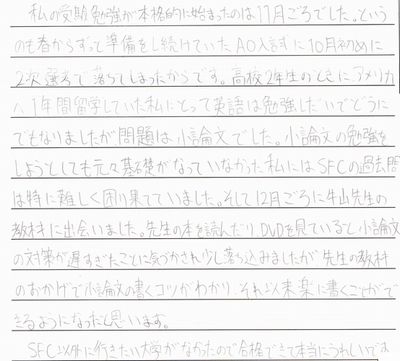 私の受験勉強が本格的に始まったのは11月ごろでした。という
のも春からずっと準備をし続けていたAO入試に10月初めに
2次選考で落ちてしまったからです。高校2年生のときにアメリカ
へ1年間留学していた私にとって英語は勉強しだいでどうに
でもなりましたが問題は小論文でした。小論文の勉強を
しようとしても元々基礎がなっていなかった私にはSFCの過去問
は特に難しく困り果てていました。そして12月ごろに牛山先生の
教材に出会いました。先生の本を読んだり、DVDを見ていると小論文
の対策が遅すぎたことに気づかされ少し落ち込みましたが先生の教材
のおかげで小論文の書くコツがわかり、それ以来楽に書くことがで
きるようになったと思います。
SFC以外に行きたい大学がなかったので合格できて本当にうれしいです